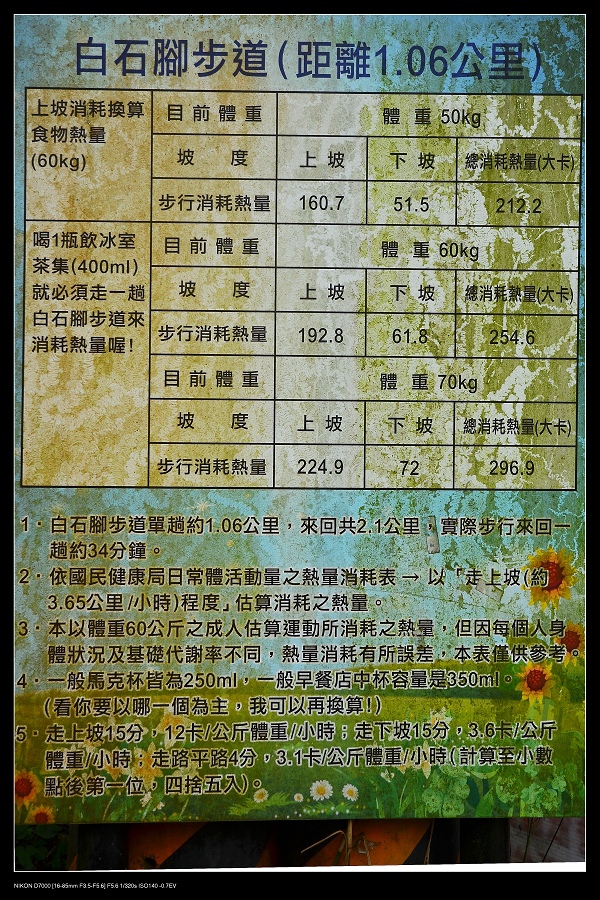 白石腳步道(距離1.06公里)
上坡消耗換算
食物熱量
(60kg)
目前體重
體 重 50kg
坡 度
上 坡
下 坡
總消耗熱量(大卡)
步行消耗熱量
160.7
51.5
212.2
喝1瓶飲冰室
茶集(400ml)
就必須走一趟
白石腳步道來
消耗熱量喔!
目前體重
體 重 60kg
坡 度
上 坡
下 坡
總消耗熱量(大卡)
步行消耗熱量
192.8
61.8
254.6
目前體重
體 重 70kg
坡 度
上 坡
下 坡
總消耗熱量(大卡)
步行消耗熱量
224.9
72
296.9
1．白石腳步道單趟約1.06公里，來回共2.1公里，實際步行來回一
趟約34分鐘。
2．依國民健康局日常體活動量之熱量消耗表→以「走上坡(約
3.65公里/小時)程度」估算消耗之熱量。
3．本以體重60公斤之成人估算運動所消耗之熱量，但因每個人身
體狀況及基礎代謝率不同，熱量消耗有所誤差，本表僅供參考。
4．一般馬克杯皆為250ml，一般早餐店中杯容量是350ml。
(看你要以哪一個為主，我可以再換算!)
5．走上坡15分，12卡/公斤體重/小時；走下坡15分，3.6卡/公斤
體重/小時；走路平路4分，3.1卡/公斤體重/小時(計算至小數
點後第一位，四捨五入)。
NIKON D7000 [16-85mm F3.5-F5.6] F5.6 1/320s ISO140 -0.7EV